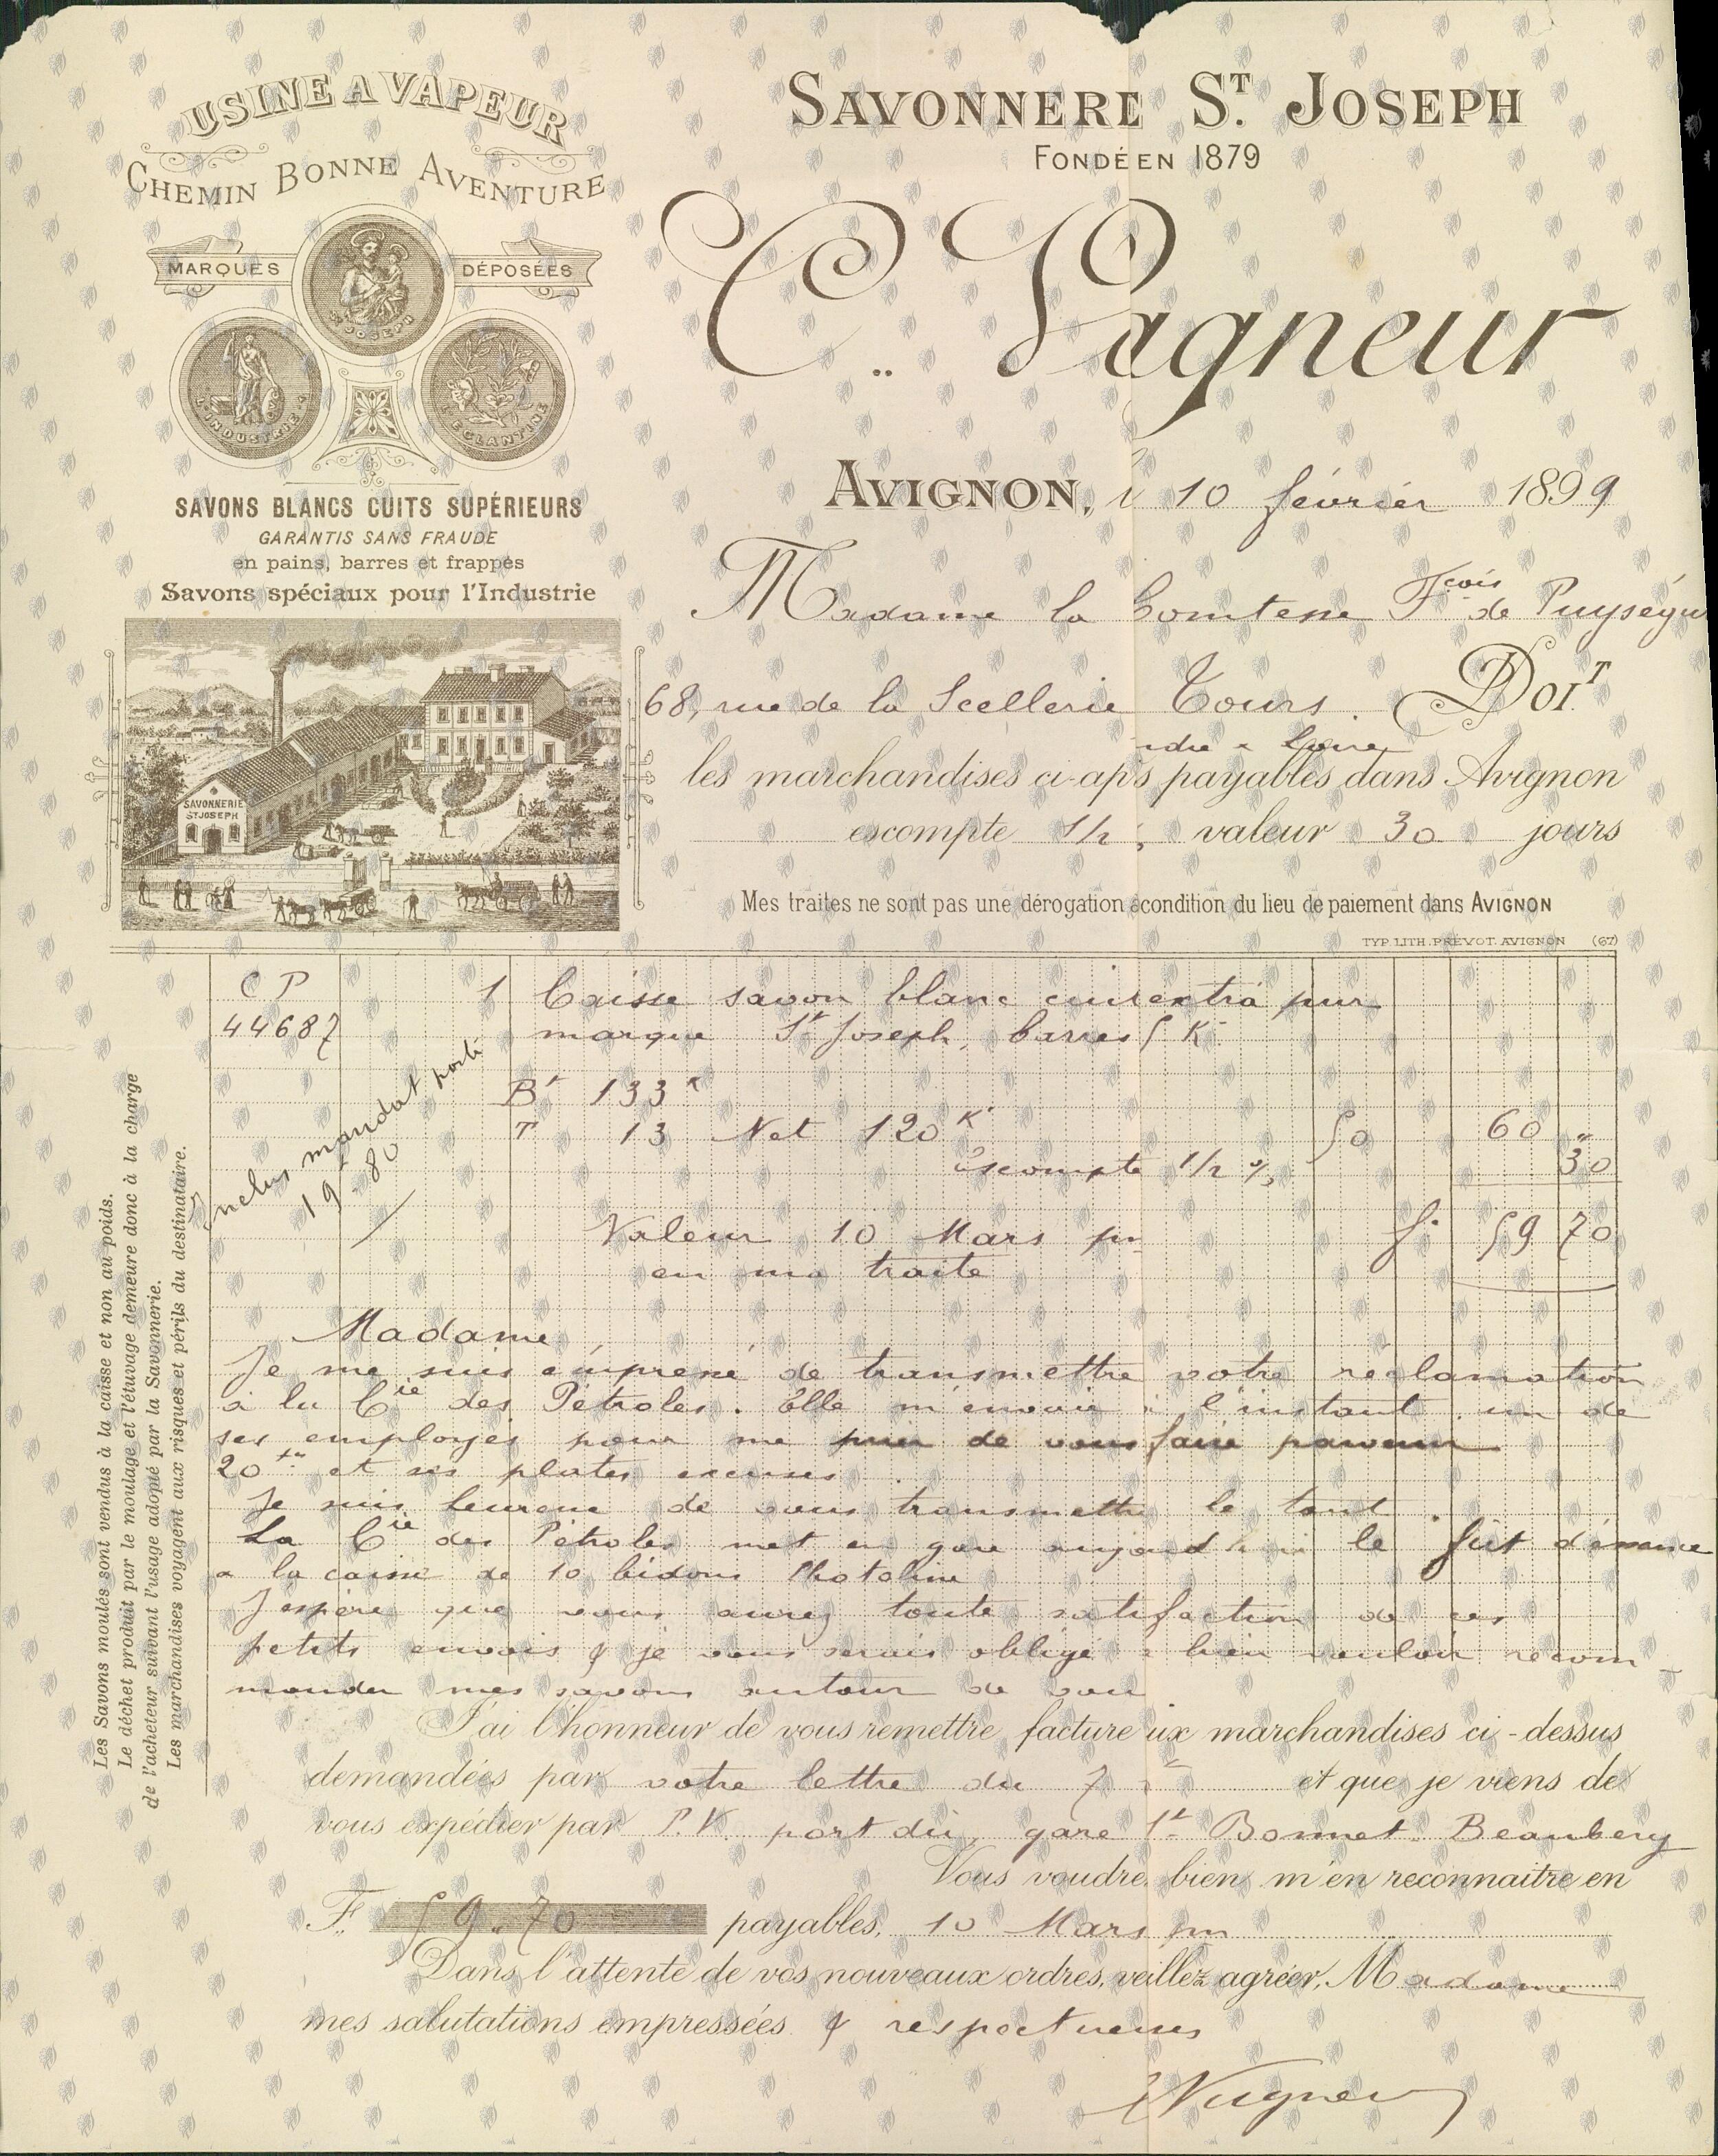 USINE A VAPEUR
CHEMIN BONNE AVENTURE
MARQUES DÉPOSÉES
ST JOSEPH
L'INDUSTRIE
L'EGLANTINE
SAVONS BLANCS CUITS SUPÉRIEURS
GARANTIS SANS FRAUDE
en pains, barres et frappés
Savons spéciaux pour l'Industrie
SAVONNERIE
ST JOSEPH
SAVONNERE ST. JOSEPH
FONDÉ EN 1879
C. Vagneur
AVIGNON, 10 février 1899
Madame la Comtesse Fçois de Puységu
68, rue de la Scellerie Tours. DOIT
ndre & Loire
les marchandises ci-aps payables dans Avignon
escompte 1/2 % valeur 30 jours
Mes traites ne sont pas une dérogation condition du lieu de paiement dans AVIGNON
TYP. LITH. PRÉVOT. AVIGNON (67)
C P 1 Caisse savon blanc cuit extra pur
44687 marque St Joseph, barres 5 K.
Bt 133 K
T 13 Net 120 K 50 60 "
Escompte 1/2 % 30
Valeur 10 Mars pn f. 59 70
en ma traite
inclus mandat poste
19-80
Madame
Je me suis empressé de transmettre votre réclamation
à la Cie des Pétroles. Elle m'envoie à l'instant un de
ses employés pour me prier de vous faire parvenir
20 et ses plates excuses
Je suis heureux de vous transmettre le tout.
La Cie des Pétroles met en gare aujourd'hui le fût d'essence
& la caisse de 10 bidons
J'espère que vous aurez toute satisfaction de ces
petits envois & je vous serais obligé bien vouloir recom-
mander mes savons autour de vous
J'ai l'honneur de vous remettre facture ux marchandises ci-dessus
demandées par votre lettre du 7 et que je viens de
vous expédier par P.V. port dû, gare St Bonnet Beaubery
Vous voudre bien m'en reconnaitre en
F. 59.70 payables, 10 Mars pn
Dans l'attente de vos nouveaux ordres, veillez agréer, Madame
mes salutations empressées & respectueuses
Vagneur
Les Savons moulés sont vendus à la caisse et non au poids.
Le déchet produit par le moulage et l'étuvage demeure donc à la charge
de l'acheteur suivant l'usage adopté par la Savonnerie.
Les marchandises voyagent aux risques et périls du destinataire.